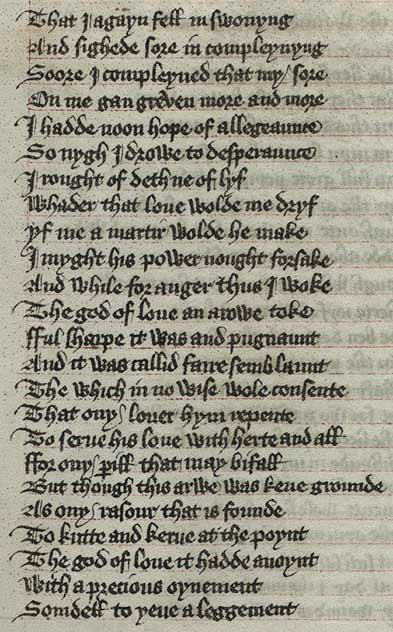 That I agayn fell in swonyng
And sighede sore in compleynyng
Soore I compleyned that my sore
On me gan greven more and more
I hadde noon hope of allegeaunce
So nygh I drowe to desperaunce
I rought of deth ne of lyf
Whader that love wolde me dryf
yf me a martir wolde he make
I myght his power nought forsake
And while for anger thus I woke
The god of love an arowe toke
fful sharpe it was and pugnaunt
And it was callid faire semblaunt
The which in no wise wole consente
That ony lover hym repente
To serve his love with herte and all
ffor ony perill that may bifall
But though this arwe was kene grounde
As ony rasour that is founde
To kutte and kerve at the poynt
The god of love it hadde anoynt
With a precious oynement
Somdell to yeve aleggement